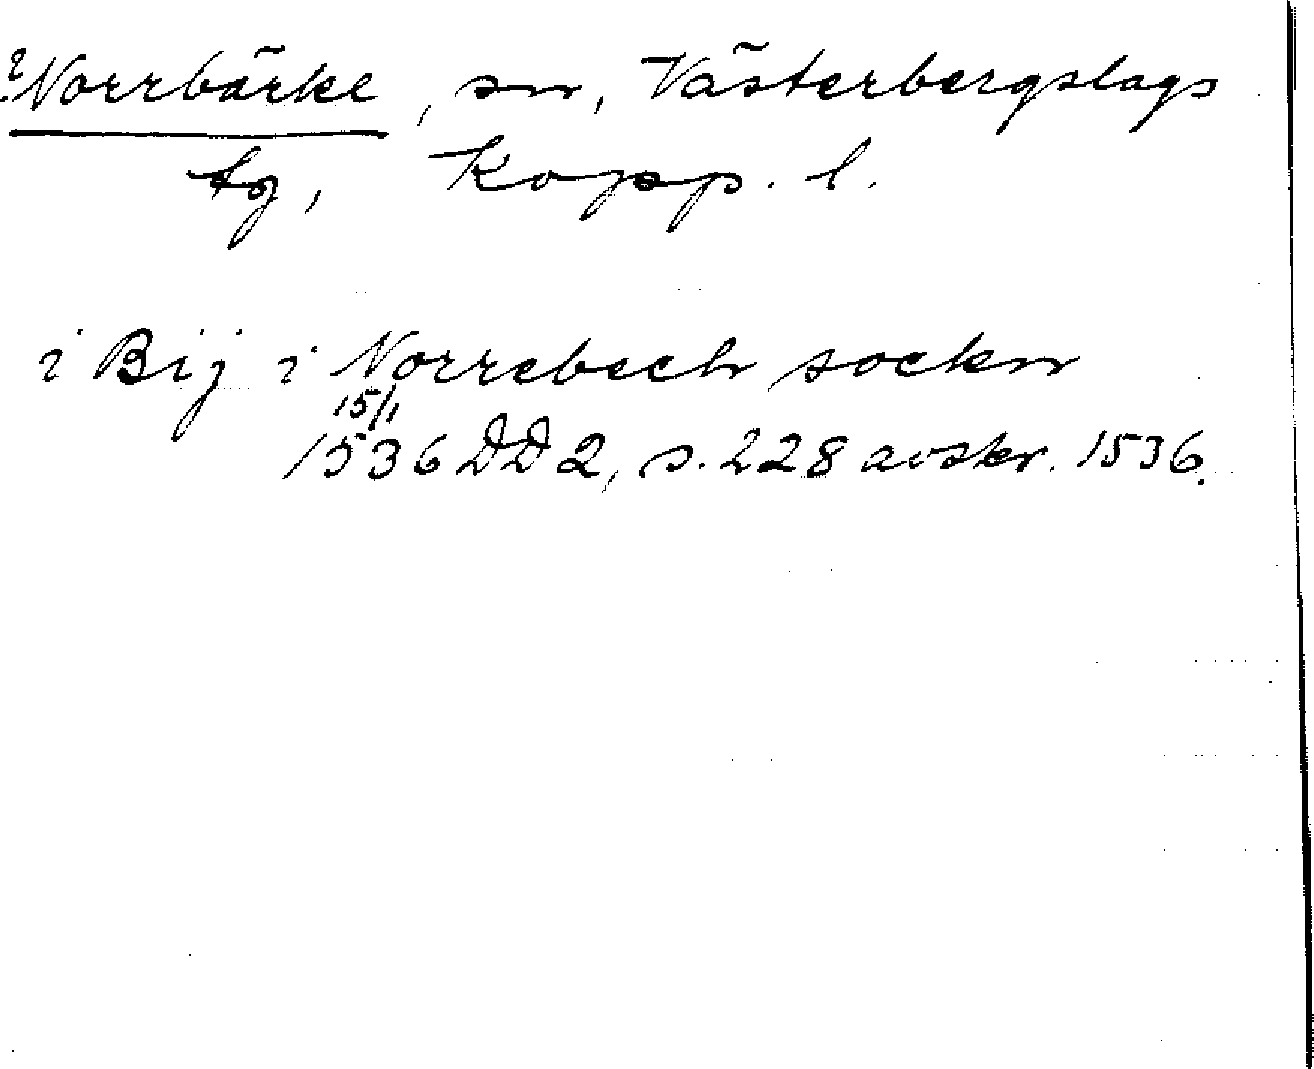 ?Norrbärke, sn, Västerbergslags
tg, Kopp. l.
i Bij i Norrebech sockn
15/1
1536 DD 2, s. 228 avskr. 1536.